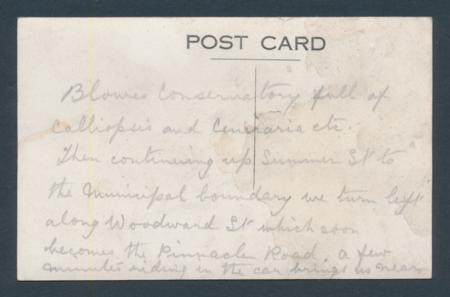 POST CARD
Blowes Conservatory full of
Calliopsis and Cineraria etc.
Then continuing up Summer St to
the Municipal boundary we turn left
along Woodward St which soon
becomes the Pinnacle Road. A few
minutes riding in the car brings us near